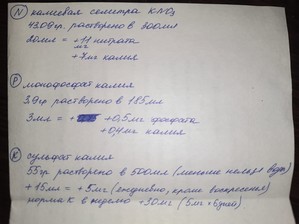 N калиевая селитра KNO3
43.09гр. растворено в 300мл
20мл = +11 нитрата
мг
+7мг калия
P монофосфат калия
3.9гр растворено в 185мл
3мл = + +0,5мг фосфата
+0,4мг калия
K сульфат калия
55гр растворено в 500мл (меньше нельзя воды)
+15мл = +5мг (ежедневно, кроме воскресения)
норма K в неделю +30мг (5мг * 6дней)